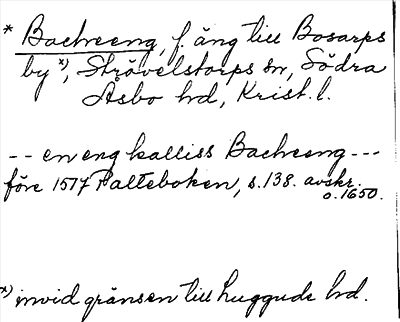 * Backeeng, f. äng till Bosarps
by x), Strövelstorps sn, Södra
Åsbo hd, Krist. l.
-- en eng kalliss Backeeng ---
före 1517 Palteboken, s. 138. avskr.
o. 1650.
x) invid gränsen till Luggude hd.